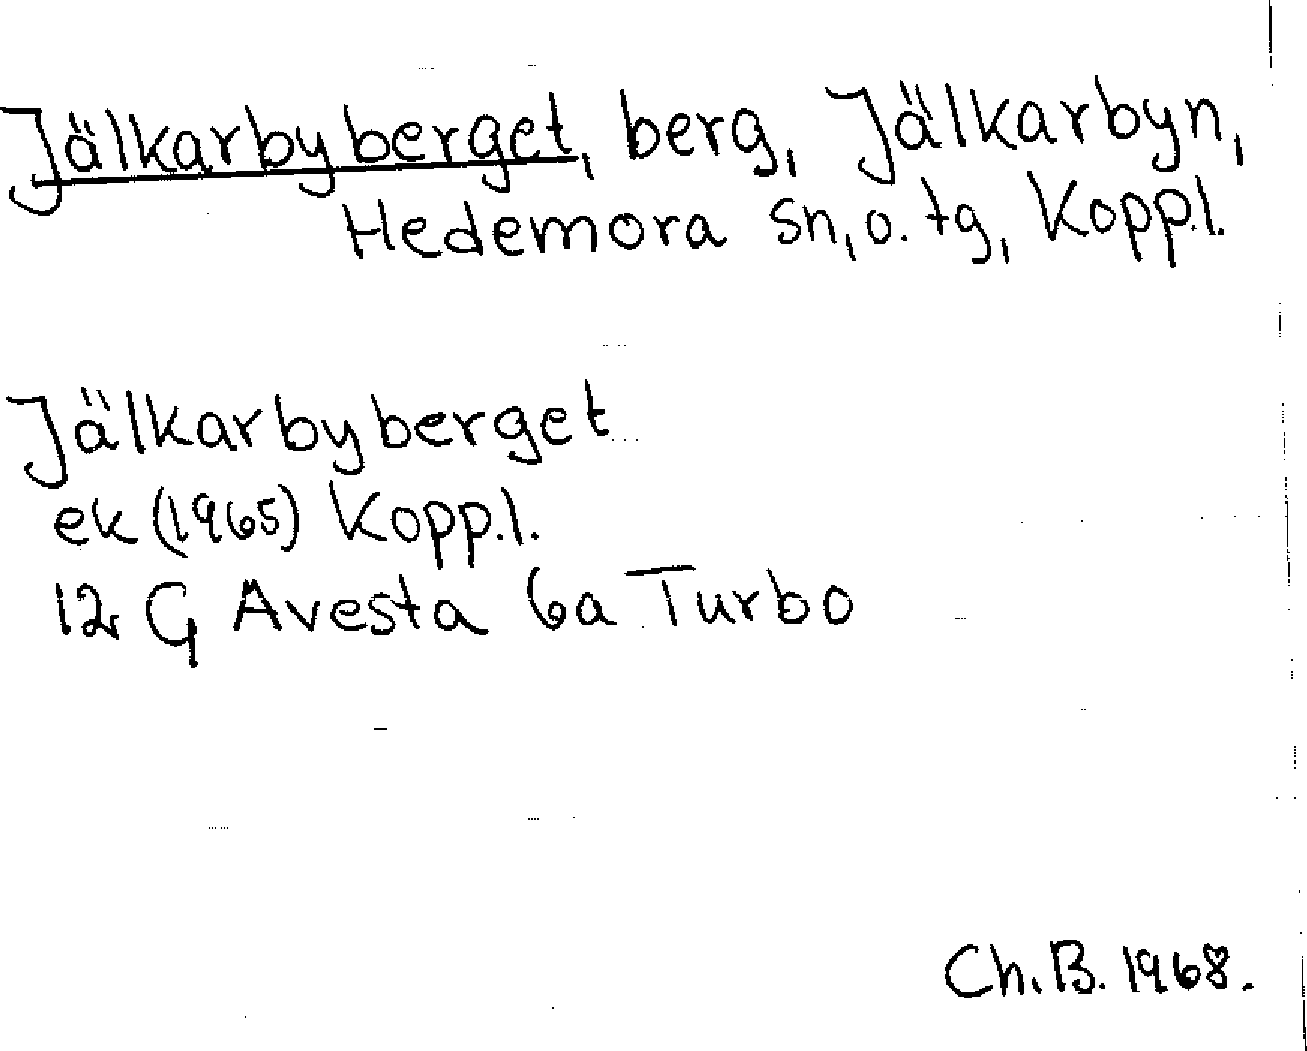 Jälkarbyberget, berg, Jälkarbyn,
Hedemora sn, o. tg, Kopp.l.
Jälkarbyberget
ek (1965) Kopp.l.
12 G Avesta 6a Turbo
Ch. B. 1968.